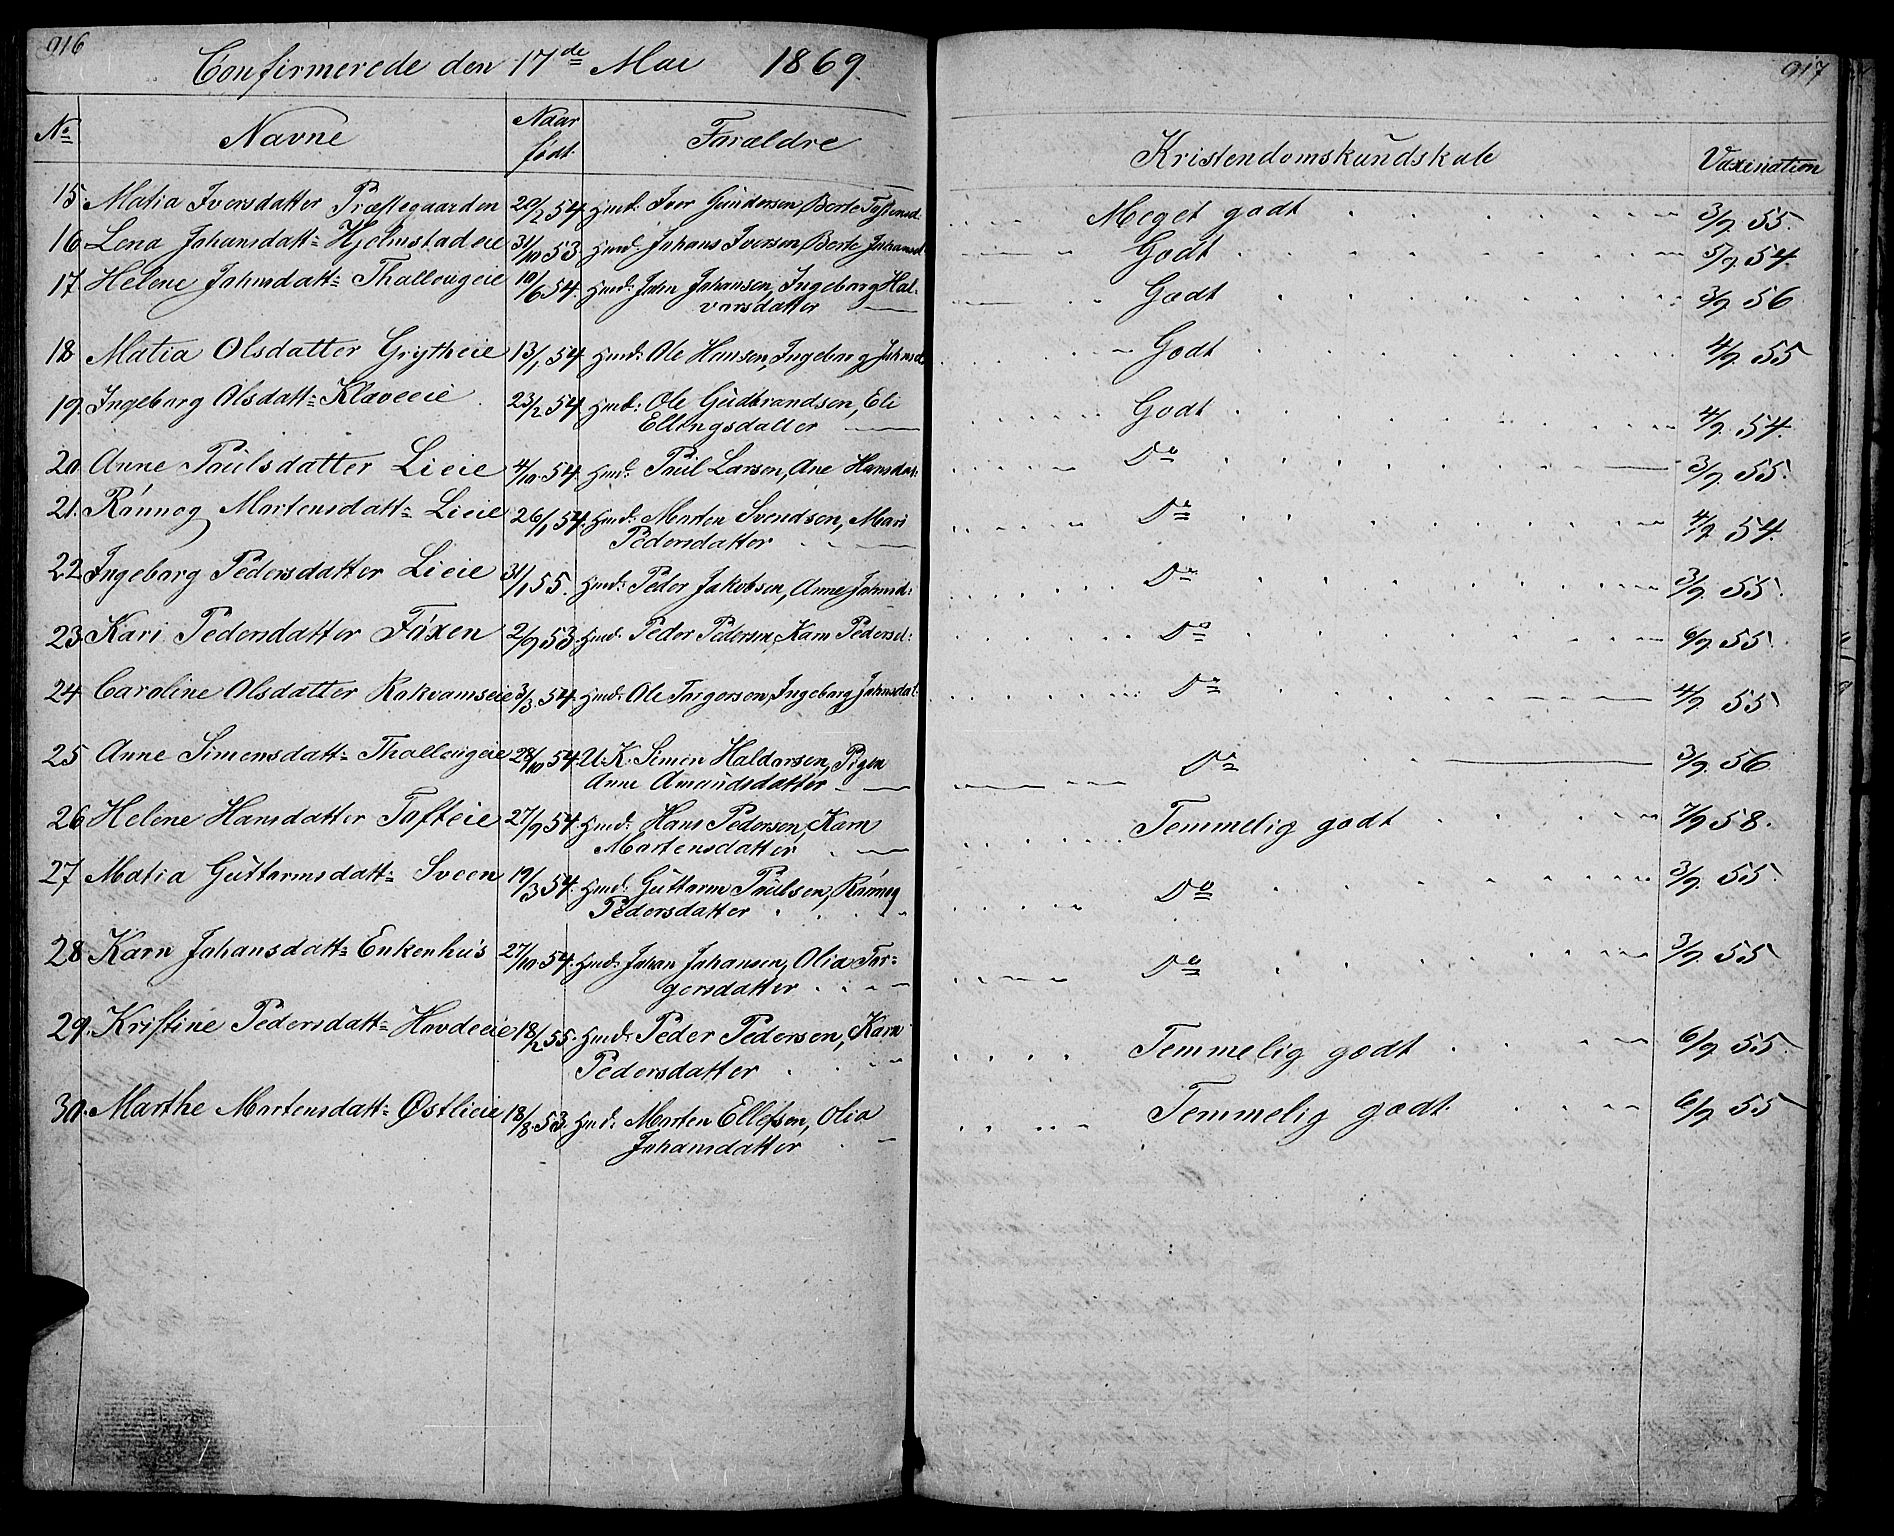 916
Confirmerede den 17de Mai 1869.
No Navne Naar født. Forældre
15. Matia Iversdatter Præstegaarden 20/2 54. Hmd: Iver Gundersen, Berte Tostensd.
16. Lena Johansdatt= Hjelmstadeie 31/10 53. Hmd: Johans Iversen, Berte Johansd
17. Helene Johnsdatt= Thallougeie 10/6 54. Hmd: John Johansen, Ingeborg Hal-
vorsdatter
18 Matia Olsdatter Grytheie 13/1 54. Hmd: Ole Hansen, Ingeborg Johnsd
19. Ingeborg Olsdatt= Klaveeie 23/2 54. Hmd: Ole Gudbrandsen, Eli
Ellingsdatter
20. Anne Poulsdatter Lieie 4/10 54. Hmd: Poul Larsen, Ane Hansdat:
21. Rønnog Martensdatt= Lieie 26/1 54. Hmd: Marten Svendsen, Mari
Pedersdatter
22 Ingeborg Pedersdatter Lieie 31/1 55. Hmd: Peder Jakobsen, Anne Johnsd:
23 Kari Pedersdatter Foxen 2/9 53. Hmd: Peder Pedersen, Karn Pedersd:
24 Caroline Olsdatter Kakvamseie 3/3 54. Hmd: Ole Torgersen, Ingeborg Johnsdat.
25 Anne Simensdatt= Thallougeie 28/10 54. U.K. Simen Haldorsen, Pigen
Anne Amundsdatter
26 Helene Hansdatter Tofteie 27/9 54. Hmd: Hans Pedersen, Karn
Martensdatter
27. Matia Guttormsdatt= Sveen 19/3 54. Hmd: Guttorm Poulsen, Rønnog
Pedersdatter
28. Karn Johansdatt= Enkenhus 27/10 54. Hmd: Johan Johansen, Olia Tor=
gersdatter
29. Kristine Pedersdatt= Hovdeeie 18/2 55. Hmd: Peder Pedersen, Karn
Pedersdatter
30. Marthe Martensdatt= Østlieie 18/8 53. Hmd: Morten Ellefsen, Olia
Johansdatter
917
Kristendomskundskab Vaxination
Meget godt 3/9 55.
Godt 5/9 54.
Godt 3/9 56
Godt 4/9 55
Godt 4/9 54.
Do 3/9 55.
Do 4/9 54.
Do 3/9 55.
Do 6/9 55.
Do 4/9 55
Do 3/9 56.
Temmelig godt 7/9 58.
Do 3/9 55.
Do 3/9 55
Temmelig godt 6/9 55.
Temmelig godt. 6/9 55